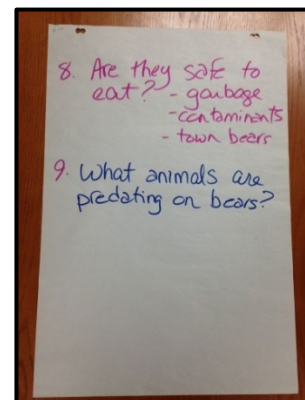 8. Are they safe to
eat? - garbage
- contaminants
- town bears
9. What animals are
predating on bears?